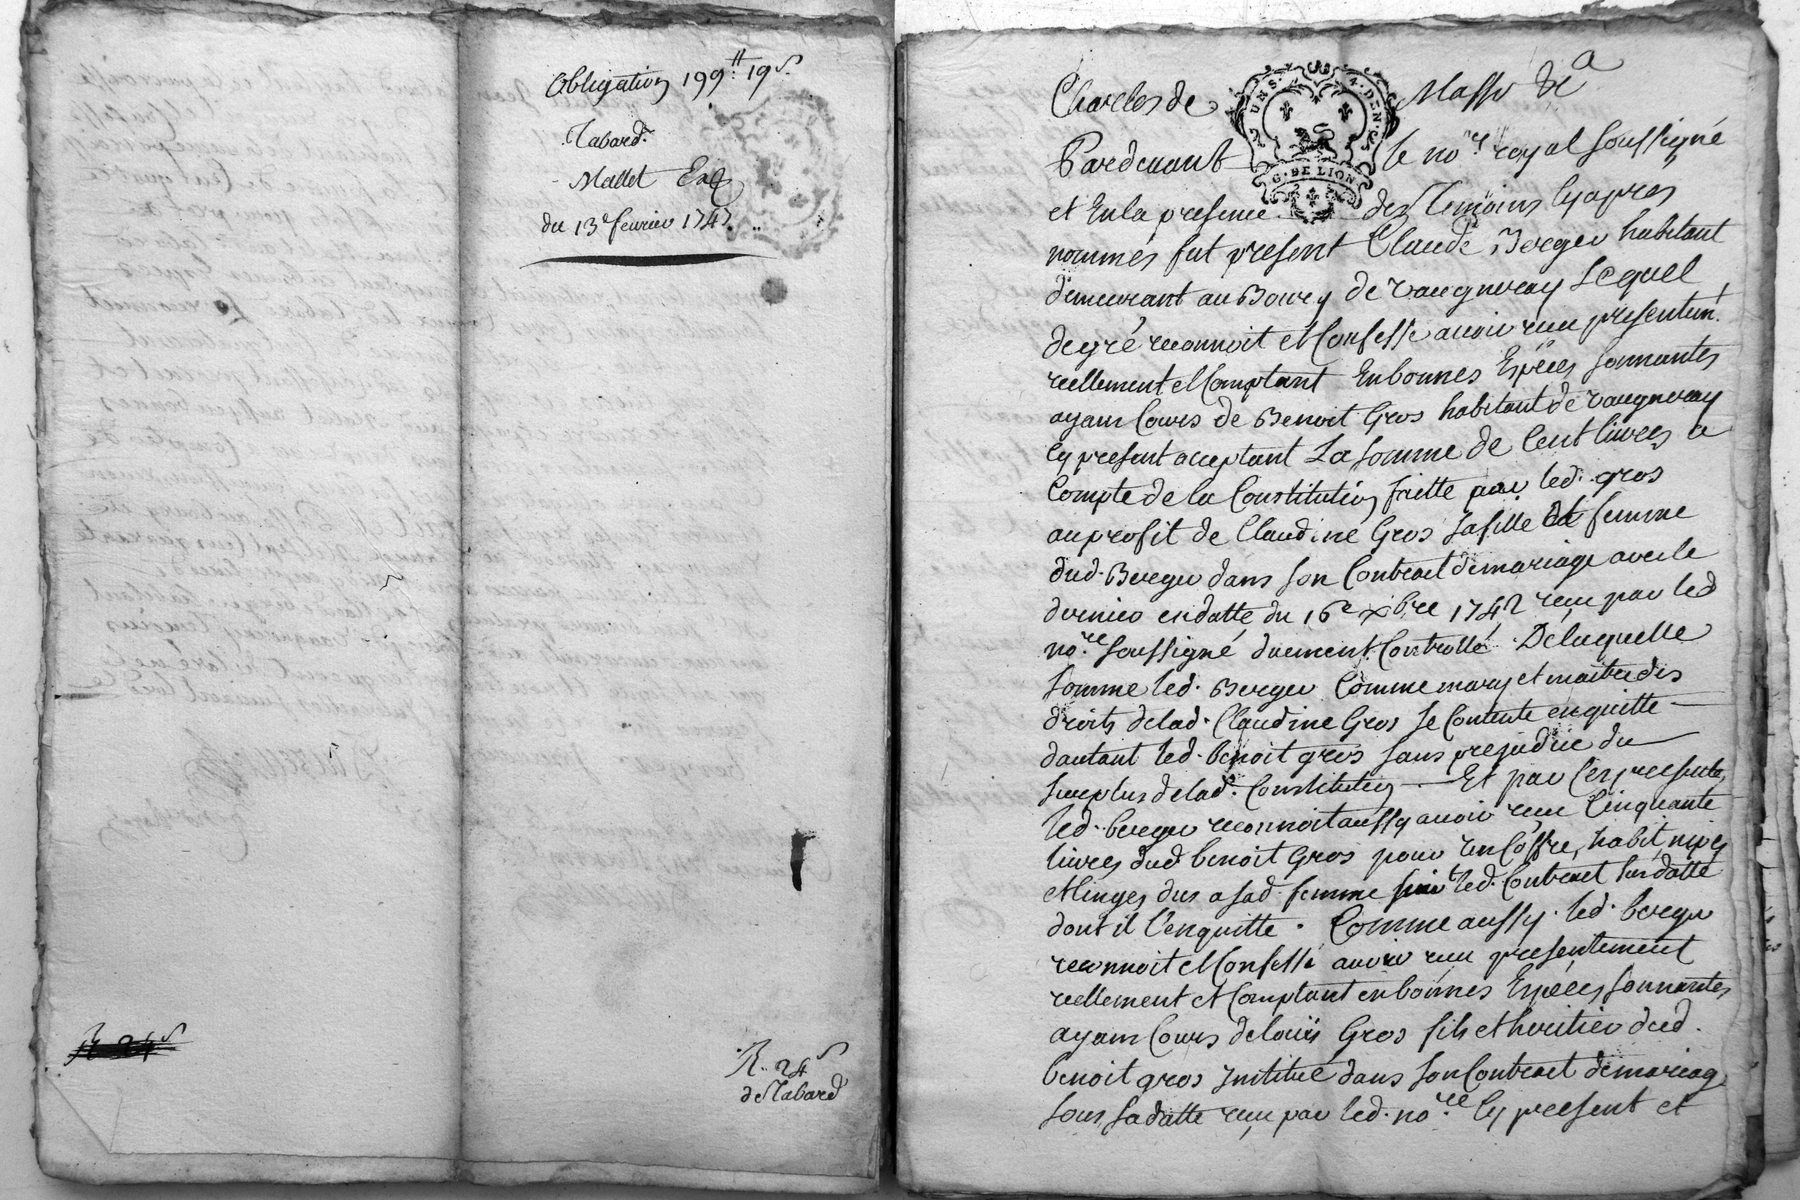 Obligation 199ᵗᵗ 19ˢ
Tabard
Mallet Exp
du 13ᵉ fevrier 1747
R 24ˢ
R. 24ˢ
de Tabard
Charles de Masso &ᵃ
UN S. 4. DEN.
G. DE LION
Pardevant le noʳᵉ royal soussigné
et En la presence des Temoins cy apres
nommés fut present Claude Berger habitant
demeurant au Bourg de vaugneray Lequel
de gré reconnoit et Confesse avoir receu presentem.ᵗ
reellement et Comptant En bonnes Espéces sonnantes
ayant Cours de Benoit Gros habitant de vaugneray
cy present acceptant La somme de Cent livres a
Compte de la Constitution faitte par led. gros
au profit de Claudine Gros sa fille femme
dud. Berger dans son Contract de mariage avec le
dernier en datte du 16ᵉ xbre 1742 receu par led
noʳᵉ soussigné duement Controllé. De laquelle
somme led. Berger Comme mary et maitre des
droits de lad. Claudine Gros se Contente en quitte
dautant led. benoit gros sans prejudice du
surplus de lad. Constitution. Et par Ces presentes
led. berger reconnoit aussy avoir receu Cinquante
livres dud. benoit Gros pour un Coffre, habit, nipes
et linges dus a sad. femme suivᵗ led. Contract susdatté
dont il l'en quitte. Comme aussy led. berger
reconnoit et Confesse avoir receu presentement
reellement et Comptant en bonnes Espéces sonnantes
ayant Cours de louis Gros fils et heritier dud.
benoit gros institué dans son Contract de mariage
sous sa datte receu par led. noʳᵉ Cy present et